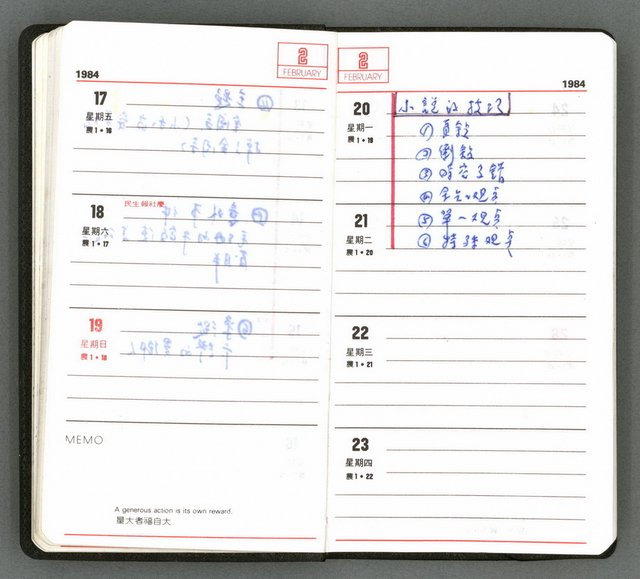 1984
2
FEBRUARY
17
星期五
農1•16
18
民生報社慶
星期六
農1•17
19
星期日
農1•18
MEMO
A generous action is its own reward.
量大者福自大
2
FEBRUARY
1984
20
星期一
農1•19
小說的技巧
① 直敘
② 倒敘
③ 時空交錯
④ 全知觀点
21
星期二
農1•20
⑤ 單一觀点
⑥ 特殊觀点
22
星期三
農1•21
23
星期四
農1•22